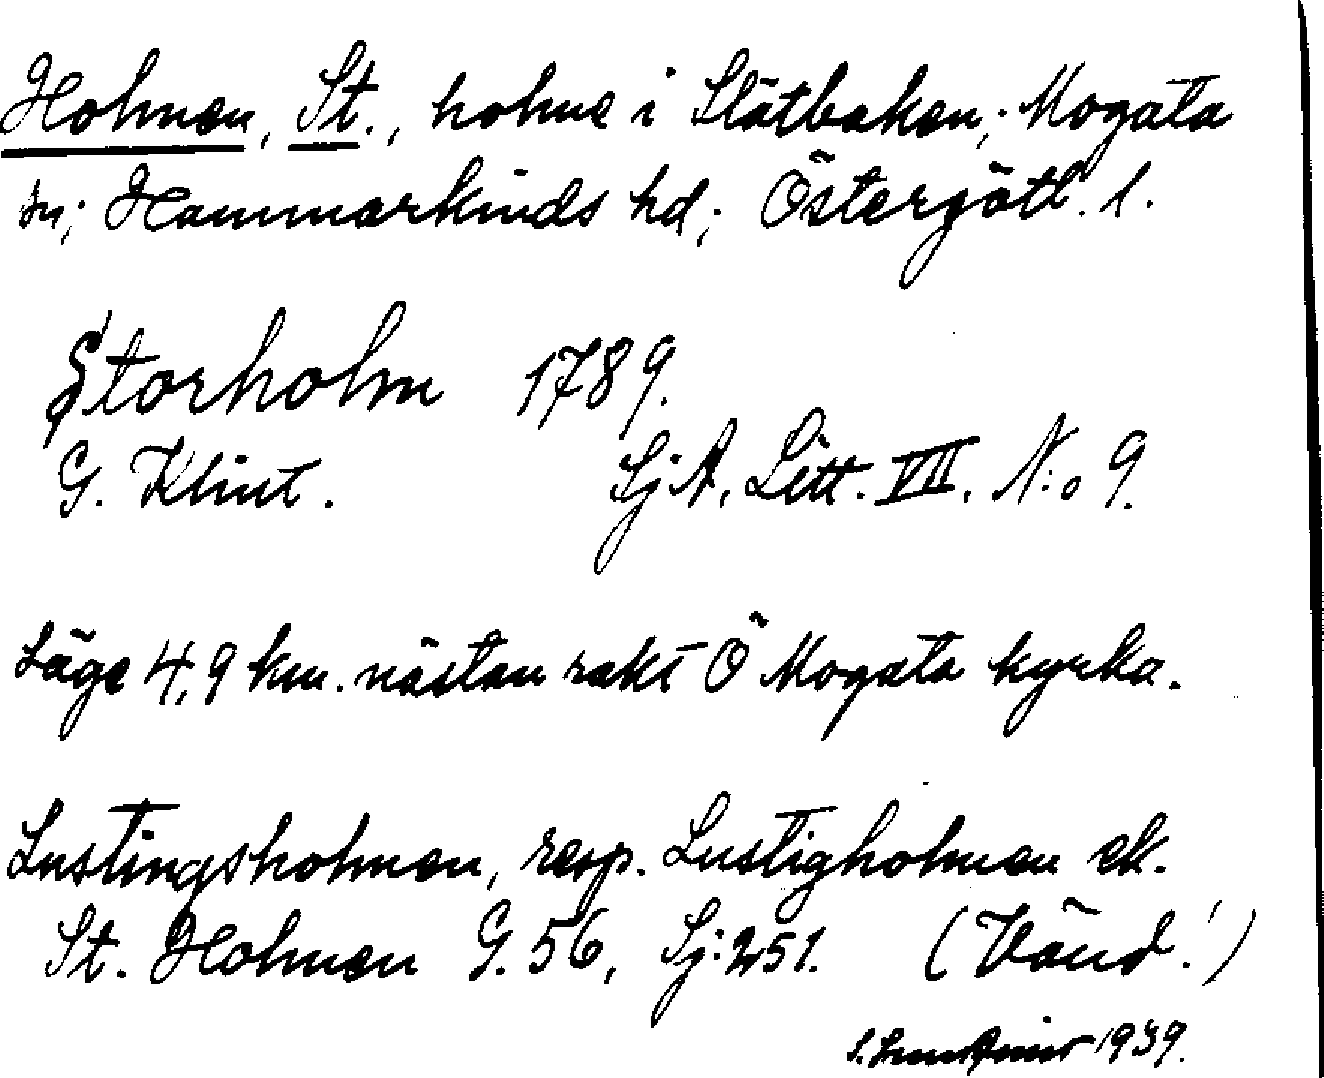 Holmen, St., holme i Slätbaken; Mogata
sn; Hammarkinds hd; Östergötl. l.
Storholm 1789.
G. Klint. SjA, Litt. VII. N:o 9.
Läge 4,9 km. nästan rakt Ö Mogata kyrka.
Lustingsholmen, resp. Lustigholmen ek.
St. Holmen G. 56, Sj: 251. (Vänd!)
1939.